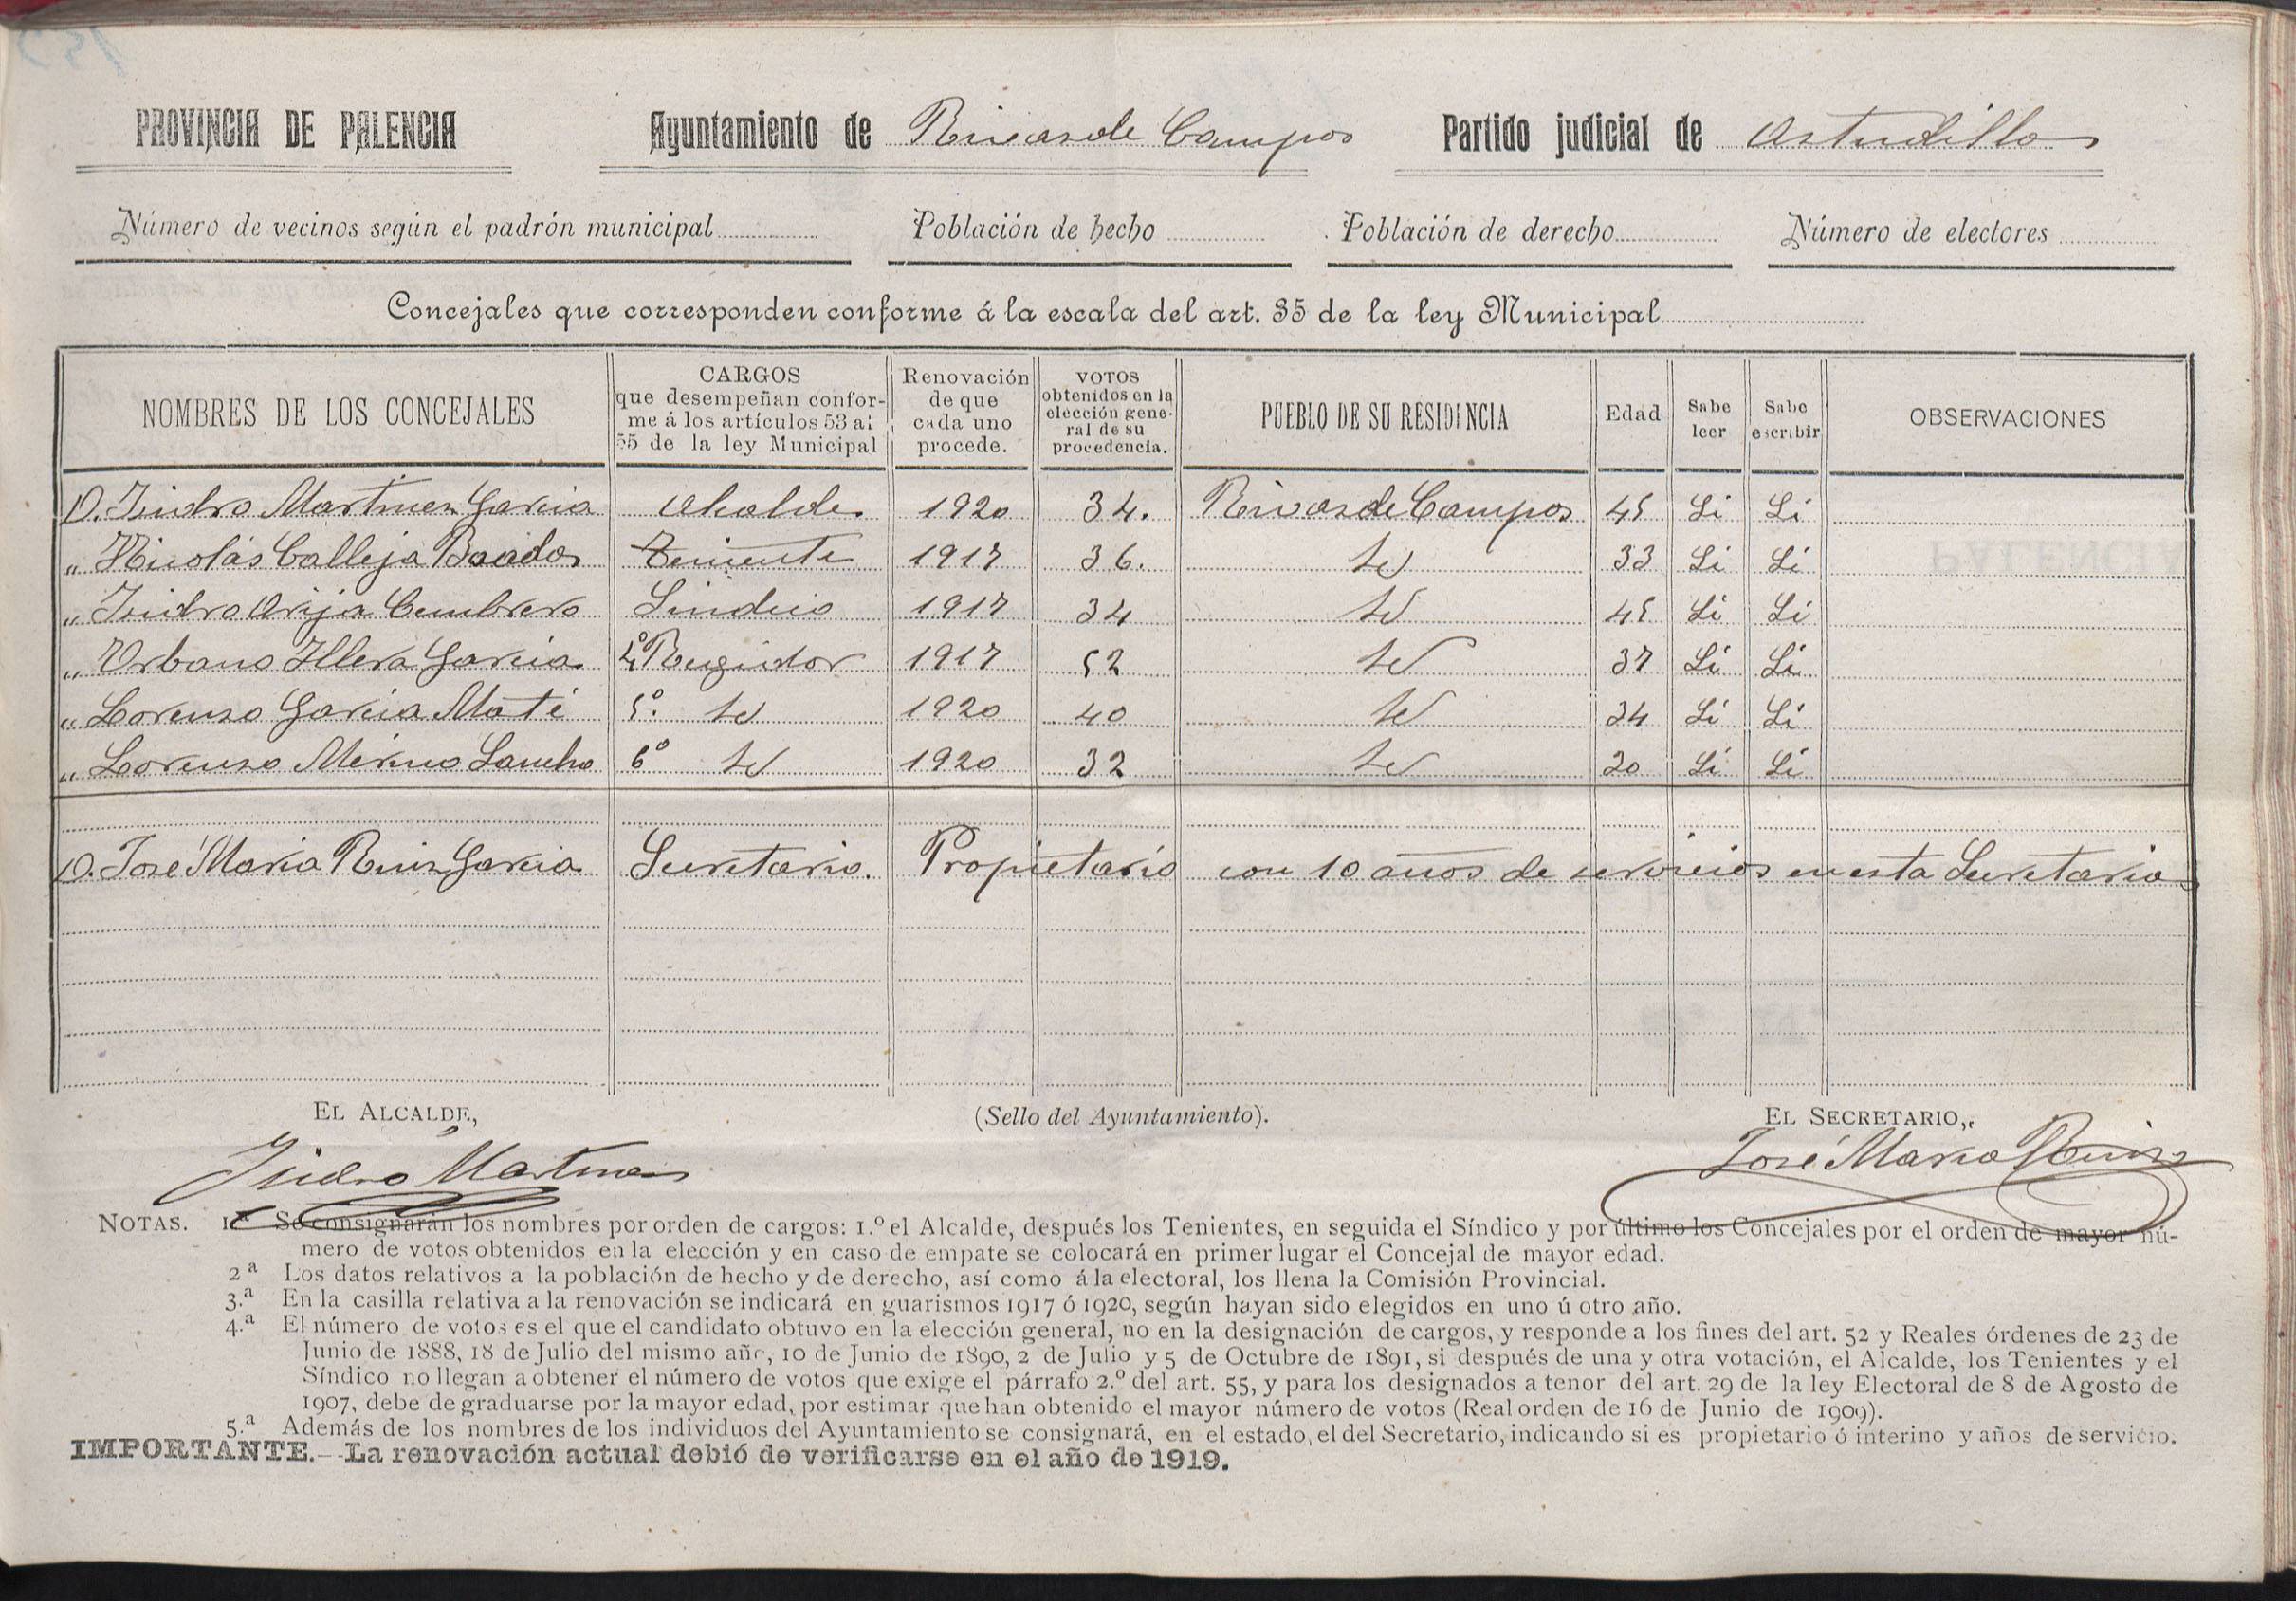 PROVINCIA DE PALENCIA Ayuntamiento de Rivas de Campos Partido judicial de Astudillo
Número de vecinos según el padrón municipal Población de hecho Población de derecho Número de electores
Concejales que corresponden conforme á la escala del art. 35 de la ley Municipal
NOMBRES DE LOS CONCEJALES CARGOS que desempeñan conforme á los artículos 53 al 55 de la ley Municipal Renovación de que cada uno procede. VOTOS obtenidos en la elección general de su procedencia. PUEBLO DE SU RESIDENCIA Edad Sabe leer Sabe escribir OBSERVACIONES
D. Isidro Martinez Garcia Alcalde 1920 34. Rivas de Campos 45 Si Si
" Nicolás Calleja Teniente 1917 36. Id 33 Si Si
" Isidro Arija Cembrero Sindico 1917 34 Id 45 Si Si
" Urbano Illera Garcia 4º Regidor 1917 52 Id 37 Si Si
" Lorenzo Garcia Maté 5º. Id 1920 40 Id 34 Si Si
" Lorenzo Merino Sancho 6º Id 1920 32 Id 30 Si Si
D. José Maria Ruiz Garcia Secretario. Propietario con 10 años de servicios en esta Secretaria
EL ALCALDE, (Sello del Ayuntamiento). EL SECRETARIO,
Isidro Martinez José Maria Ruiz
NOTAS. 1.ª Se consignarán los nombres por orden de cargos: 1.º el Alcalde, después los Tenientes, en seguida el Síndico y por último los Concejales por el orden de mayor nú-
mero de votos obtenidos en la elección y en caso de empate se colocará en primer lugar el Concejal de mayor edad.
2ª Los datos relativos a la población de hecho y de derecho, así como á la electoral, los llena la Comisión Provincial.
3.ª En la casilla relativa a la renovación se indicará en guarismos 1917 ó 1920, según hayan sido elegidos en uno ú otro año.
4.ª El número de votos es el que el candidato obtuvo en la elección general, no en la designación de cargos, y responde a los fines del art. 52 y Reales órdenes de 23 de
Junio de 1888, 18 de Julio del mismo año, 10 de Junio de 1890, 2 de Julio y 5 de Octubre de 1891, si después de una y otra votación, el Alcalde, los Tenientes y el
Síndico no llegan a obtener el número de votos que exige el párrafo 2.º del art. 55, y para los designados a tenor del art. 29 de la ley Electoral de 8 de Agosto de
1907, debe de graduarse por la mayor edad, por estimar que han obtenido el mayor número de votos (Real orden de 16 de Junio de 1909).
5.ª Además de los nombres de los individuos del Ayuntamiento se consignará, en el estado, el del Secretario, indicando si es propietario ó interino y años de servicio.
IMPORTANTE.—La renovación actual debió de verificarse en el año de 1919.